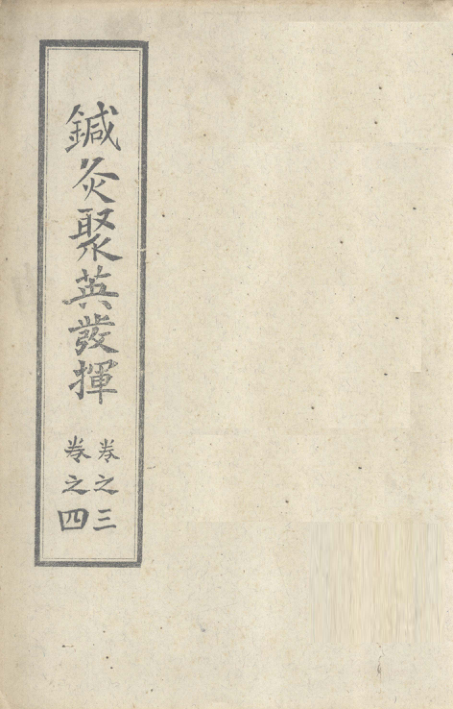 鍼灸聚英發揮
卷之三
卷之四